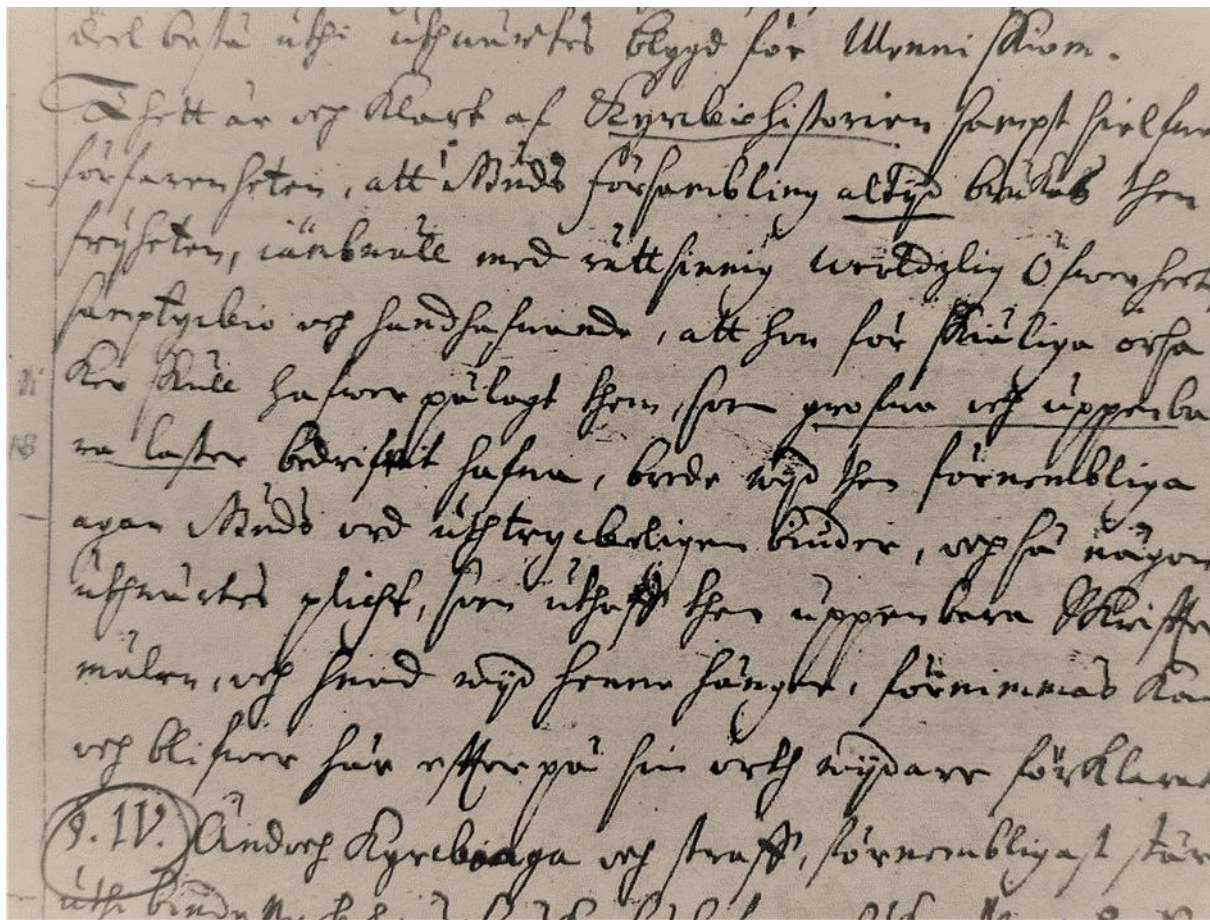 deel bestå uthi uthwärtes blygd för Menniskiom.
Thett är och klart af Kyrkiohistorien sampt sielfwa
förfarenheten, att Gudz försambling altijd brukat then
frijheten, iämbwäll med rättsinnig werldzlig Öfwerheetz
samptyckio och handhafwande, att hon för skiäliga orsa
ker skull hafwer pålagt them, som grofwa och uppenba
ra laster bedrifwit hafwa, brede wijd then förnembliga
agan Gudz ord uthtryckeligen biuder, och så någon
uthwärtes plicht, som uthaff then uppenbara Skriffte
målen, och hwad wijd henne hänger, förnimmas kan
och blifwer här effter på sin orth wijdare förklarat
§. IV. Ändoch Kyrckioaga och straff, förnembligast står
uthi